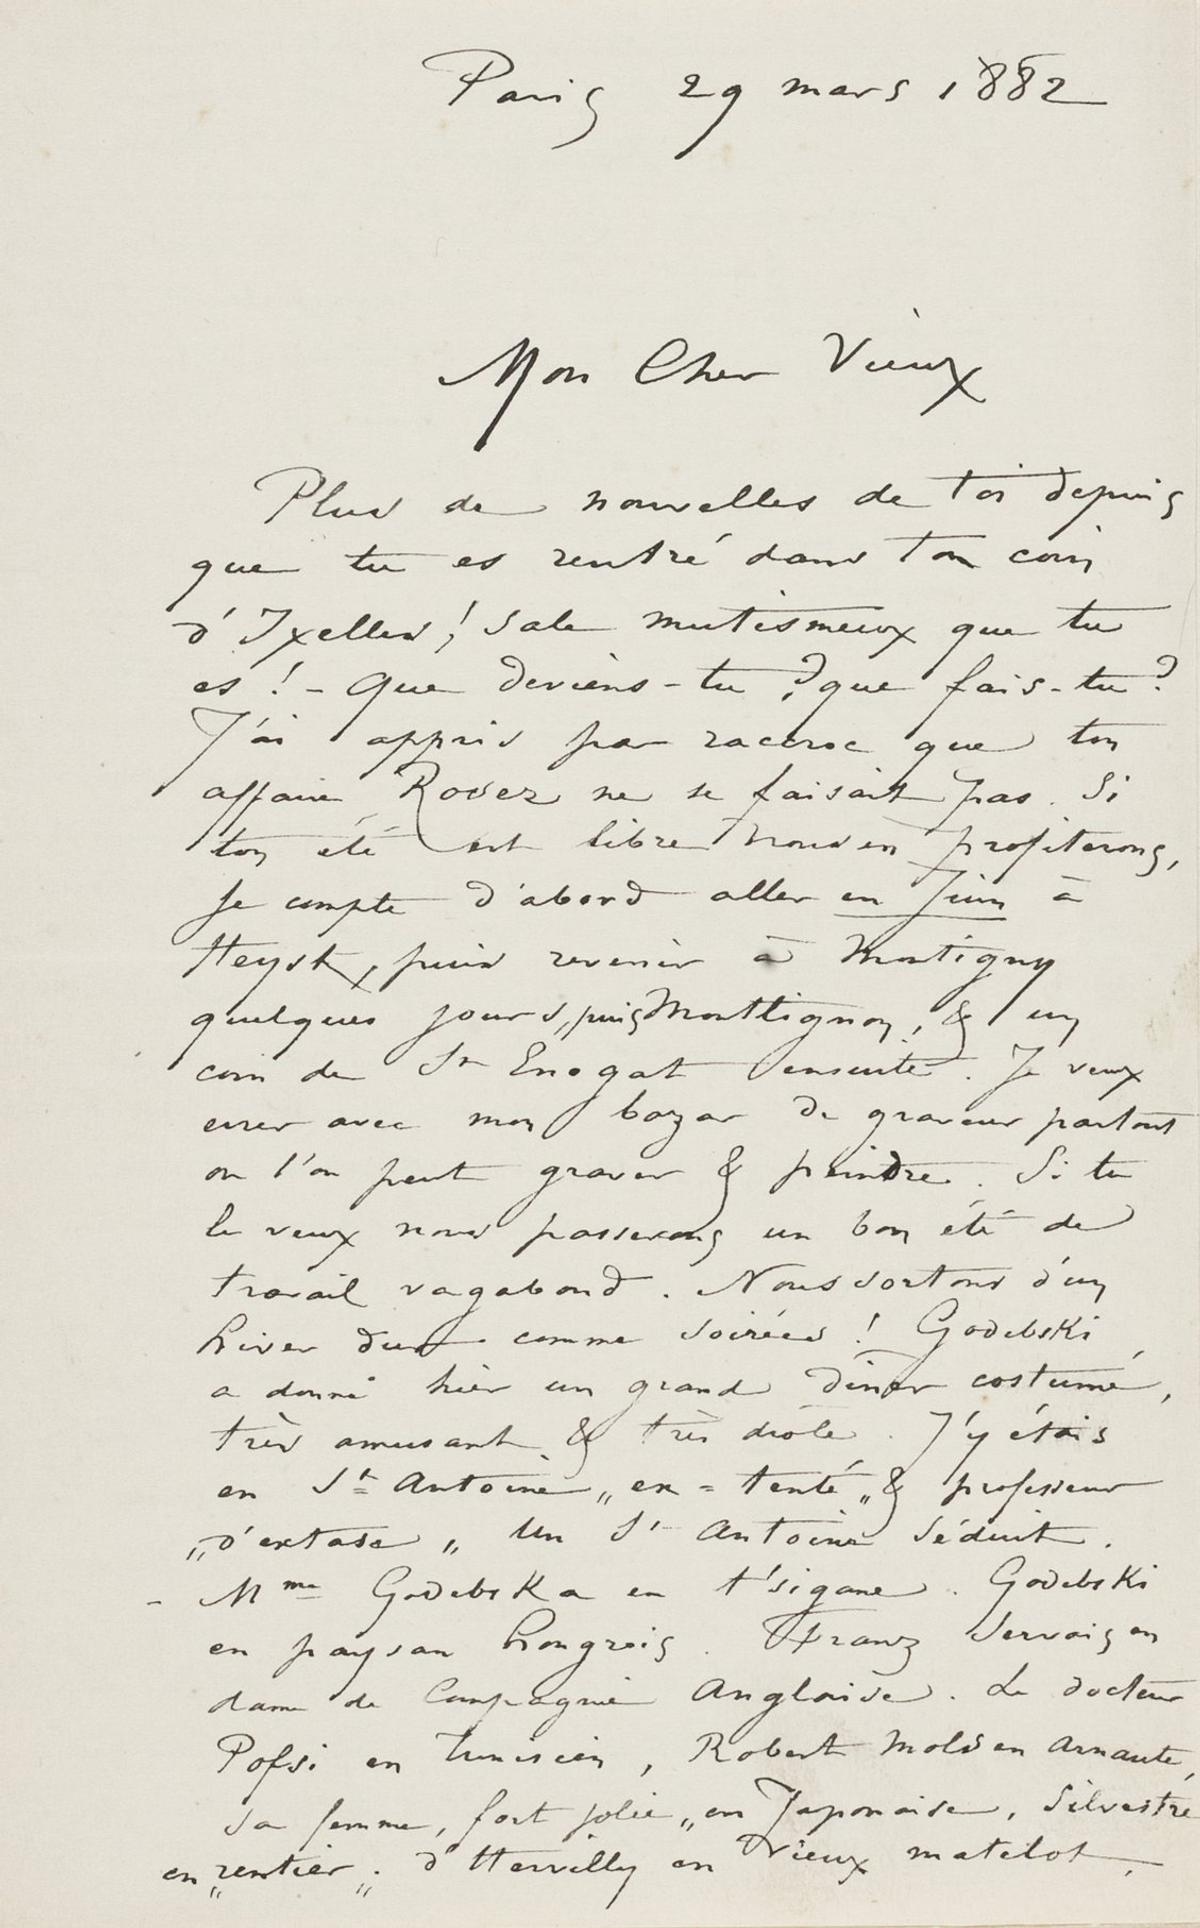 Paris 29 mars 1882
Mon Cher Vieux
Plus de nouvelles de toi depuis
que tu es rentré dans ton coin
d'Ixelles ! Sale mutismeux que tu
es ! – Que deviens-tu ? que fais-tu ?
J'ai appris par raccroc que ton
affaire Rodez ne se faisait pas. Si
ton été est libre nous en profiterons,
Je compte d'abord aller en Juin à
Heyst, puis revenir à Montigny
quelques jours, puis Montlignon, & un
coin de St Enogat ensuite. Je veux
errer avec mon bazar de graveur partout
où l'on peut graver & peindre. Si tu
le veux nous passerons un bon été de
travail vagabond. Nous sortons d'un
hiver dur comme soirées ! Godebski
a donné hier un grand diner costumé,
très amusant & très drôle. J'y étais
en St Antoine „ex-tenté„ & professeur
„d'extase„ Un St Antoine séduit.
– Mme Godebska en t'sigane. Godebski
en paysan hongrois. Franz Servais en
dame de Compagnie Anglaise. Le docteur
Pofsi en tunisien, Robert Molds en Arnaute,
sa femme, fort jolie „en Japonaise, Silvestre
en „rentier„. d'Hervilly en Vieux matelot,